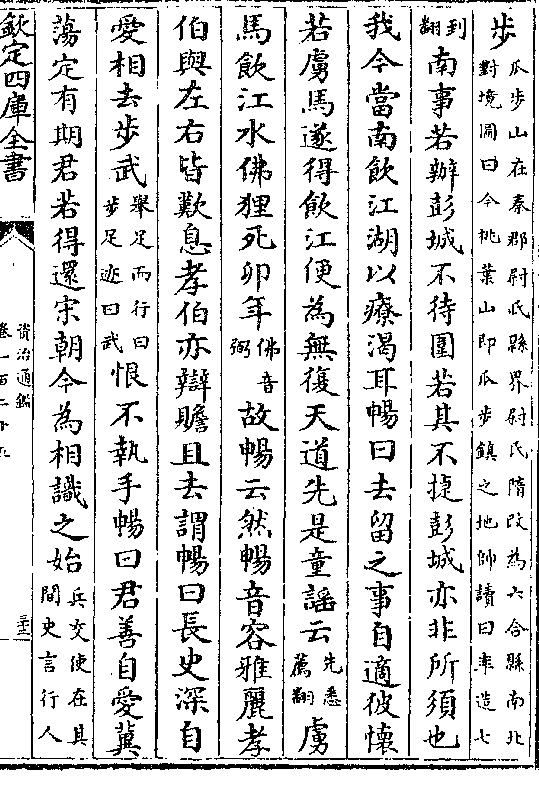 步瓜步山在秦郡尉氏縣界尉氏隋改為六合縣南北對境圖曰今桃葉山即瓜步鎮之地帥讀曰率造七
到翻南事若辦彭城不待圍若其不捷彭城亦非所須也
我今當南飲江湖以療渴耳暢曰去留之事自適彼懷
若虜馬遂得飲江便為無復天道先是童謠云先悉薦翻虜
馬飲江水佛狸死卯年佛音弼故暢云然暢音容雅麗孝
伯與左右皆歎息孝伯亦辯贍且去謂暢曰長史深自
愛相去步武舉足而行曰步足迹曰武恨不執手暢曰君善自愛冀
蕩定有期君若得還宋朝今為相識之始兵交使在其間史言行人
欽定四庫全書
資治通鑑
卷一百二十